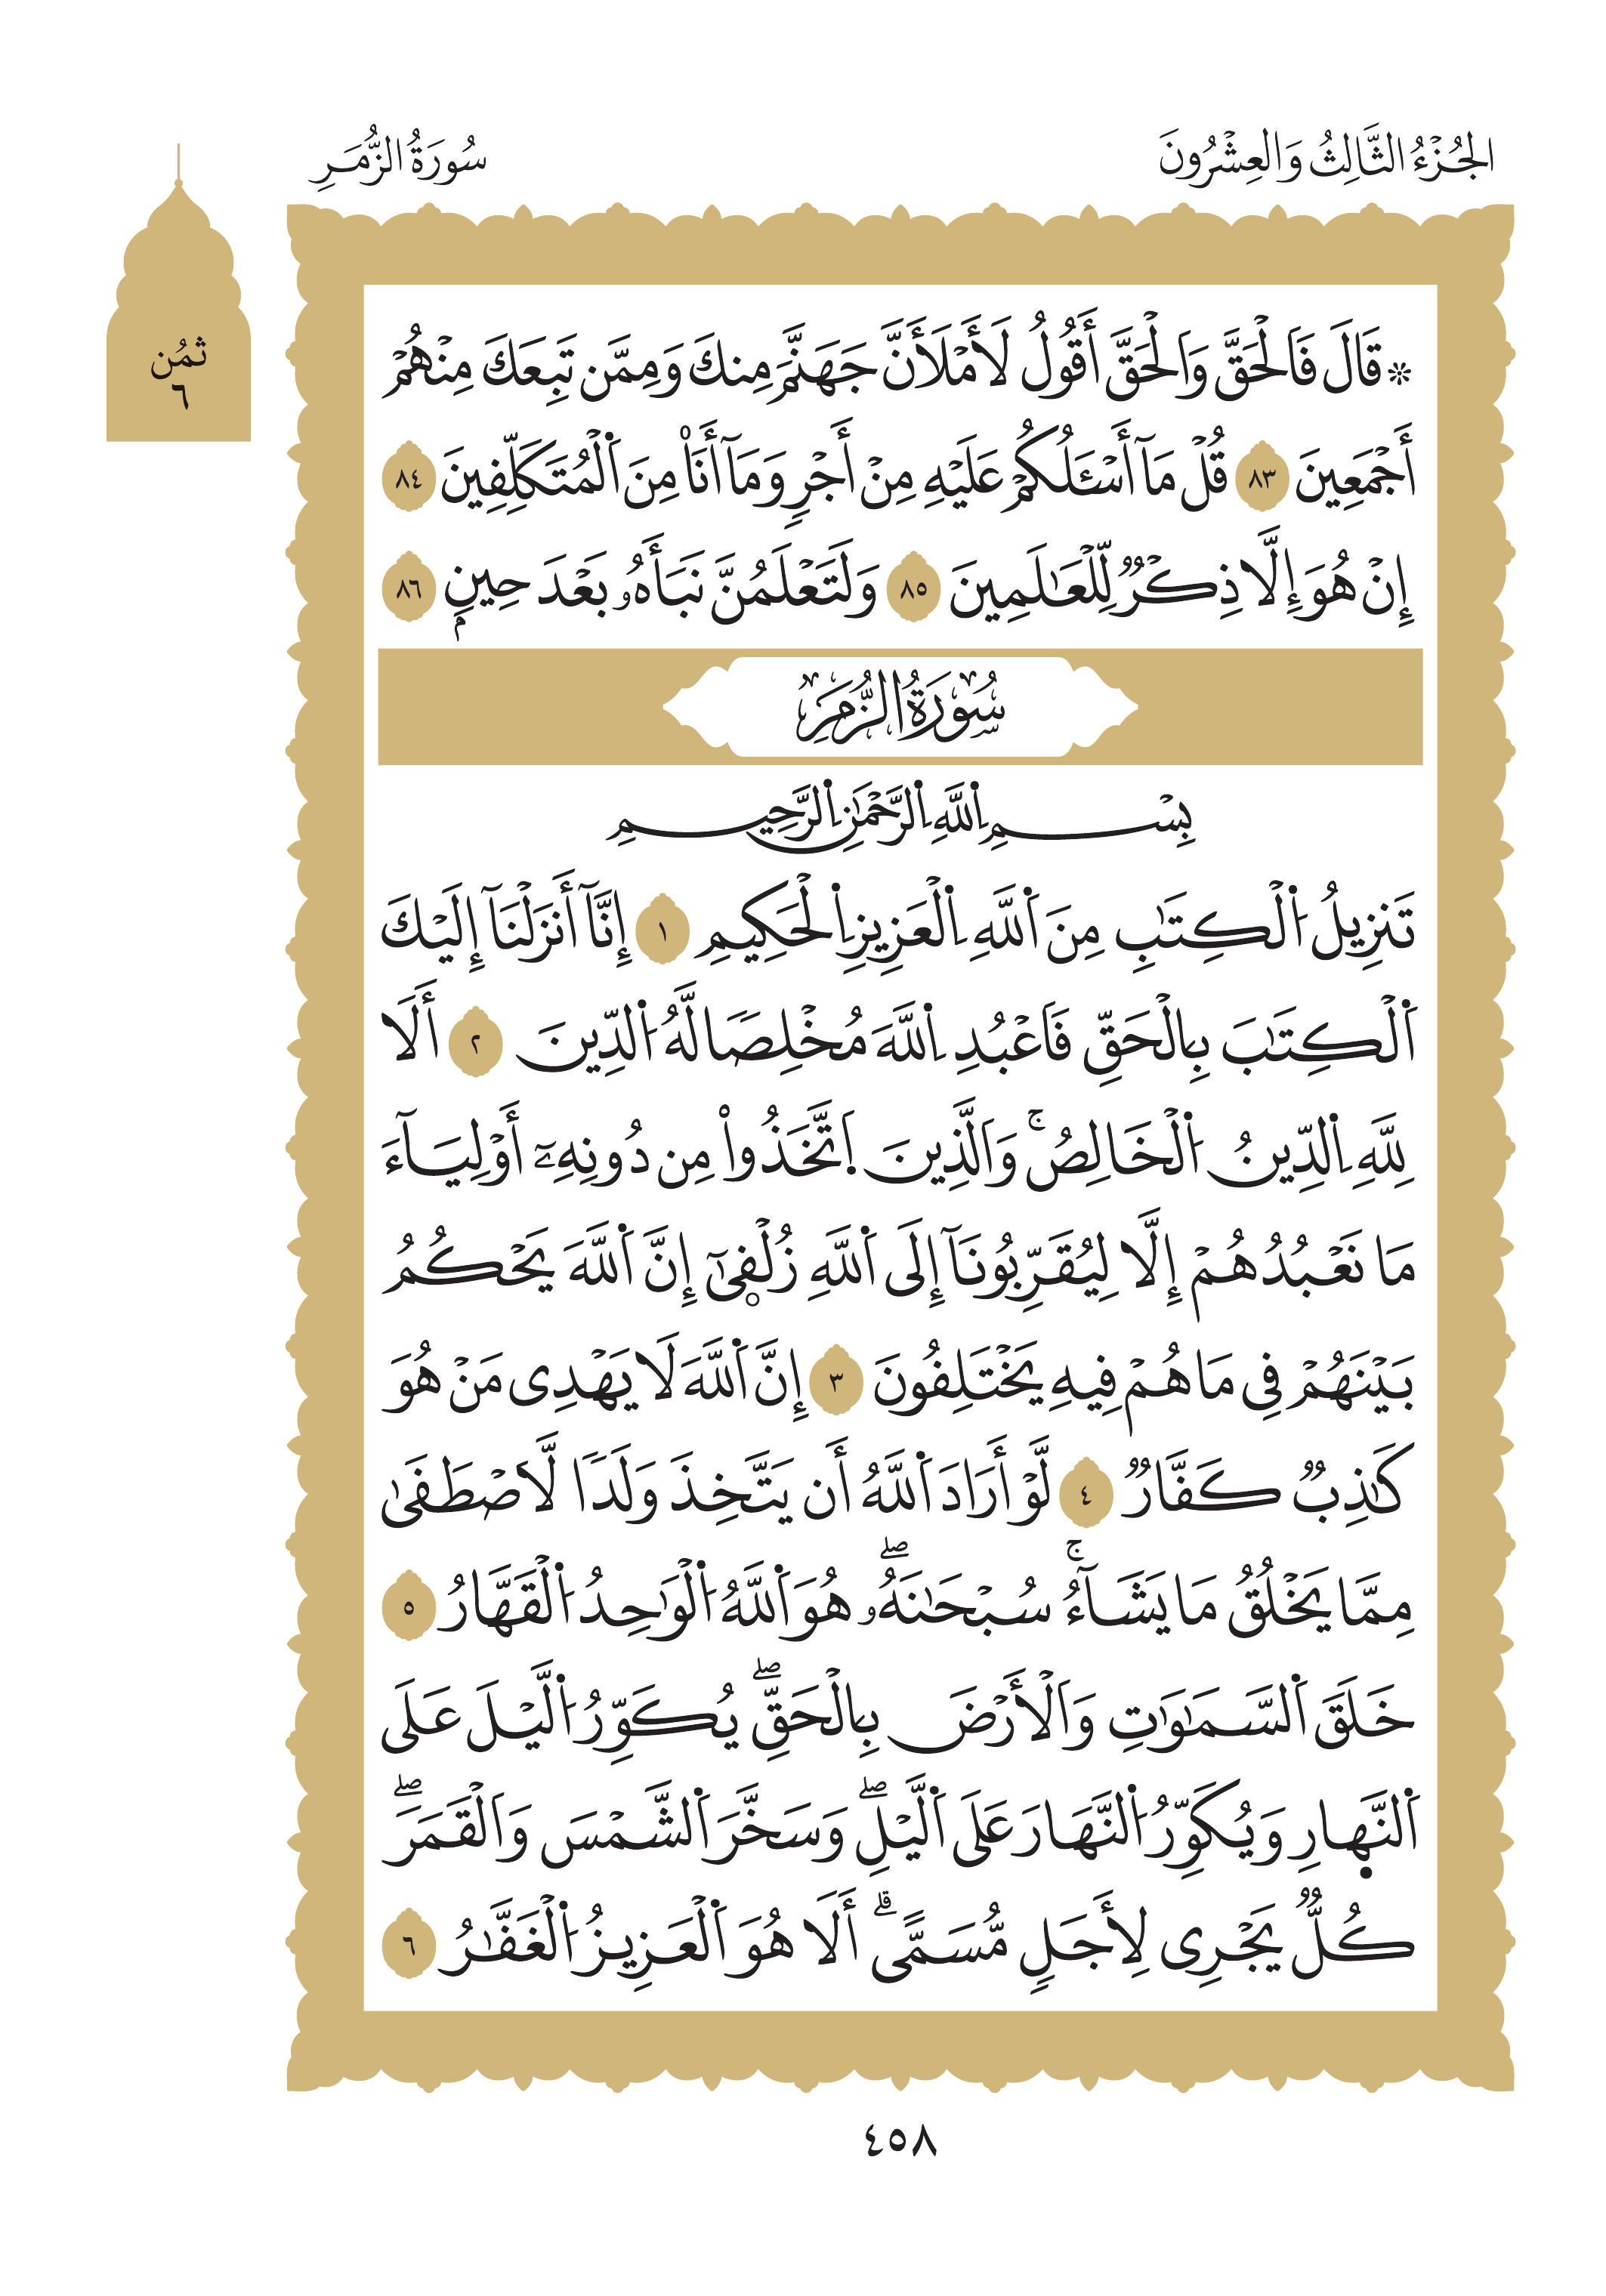 الجُزْءُ الثَّالِثُ وَالعِشْرُونَ
سُورَةُ الزُّمَرِ
ثمُن
٦
۞ قَالَ فَاَلْحَقَّ وَاَلْحَقَّ أَقُولُ لَأَمْلَأَنَّ جَهَنَّمَ مِنكَ وَمِمَّن تَبِعَكَ مِنْهُمْ
أَجْمَعِينَ ٨٣ قُلْ مَآ أَسْـَٔلُكُمْ عَلَيْهِ مِنْ أَجْرٍ وَمَآ أَنَا۠ مِنَ اَلْمُتَكَلِّفِينَ ٨٤
إِنْ هُوَ إِلَّا ذِكْرٌ لِّلْعَٰلَمِينَ ٨٥ وَلَتَعْلَمُنَّ نَبَأَهُۥ بَعْدَ حِينٍۭ ٨٦
سُورَةُ الزُّمَرِ
بِسْمِ اِللَّهِ اِلرَّحْمَٰنِ اِلرَّحِيمِ
تَنزِيلُ اُلْكِتَٰبِ مِنَ اَللَّهِ اِلْعَزِيزِ اِلْحَكِيمِ ١ إِنَّآ أَنزَلْنَآ إِلَيْكَ
اَلْكِتَٰبَ بِالْحَقِّ فَاَعْبُدِ اِللَّهَ مُخْلِصًا لَّهُ اُلدِّينَ ٢ أَلَا
لِلَّهِ اِلدِّينُ اُلْخَالِصُۚ وَاَلَّذِينَ اَتَّخَذُوا۟ مِن دُونِهِۦٓ أَوْلِيَآءَ
مَا نَعْبُدُهُمْ إِلَّا لِيُقَرِّبُونَآ إِلَى اَللَّهِ زُلْفىٰٓ إِنَّ اَللَّهَ يَحْكُمُ
بَيْنَهُمْ فِي مَا هُمْ فِيهِ يَخْتَلِفُونَ ٣ إِنَّ اَللَّهَ لَا يَهْدِى مَنْ هُوَ
كَٰذِبٌ كَفَّارٌ ٤ لَّوْ أَرَادَ اَللَّهُ أَن يَتَّخِذَ وَلَدًا لَّاَصْطَفَىٰ
مِمَّا يَخْلُقُ مَا يَشَآءُۚ سُبْحَٰنَهُۥۖ هُوَ اَللَّهُ اُلْوَٰحِدُ اُلْقَهَّارُ ٥
خَلَقَ اَلسَّمَٰوَٰتِ وَاَلْأَرْضَ بِالْحَقِّۖ يُكَوِّرُ اُلَّيْلَ عَلَى
اَلنَّهِارِ وَيُكَوِّرُ اُلنَّهَارَ عَلَى اَلَّيْلِۖ وَسَخَّرَ اَلشَّمْسَ وَاَلْقَمَرَۖ
كُلٌّ يَجْرِى لِأَجَلٍ مُّسَمًّىۗ أَلَا هُوَ اَلْعَزِيزُ اُلْغَفَّٰرُ ٦
٤٥٨